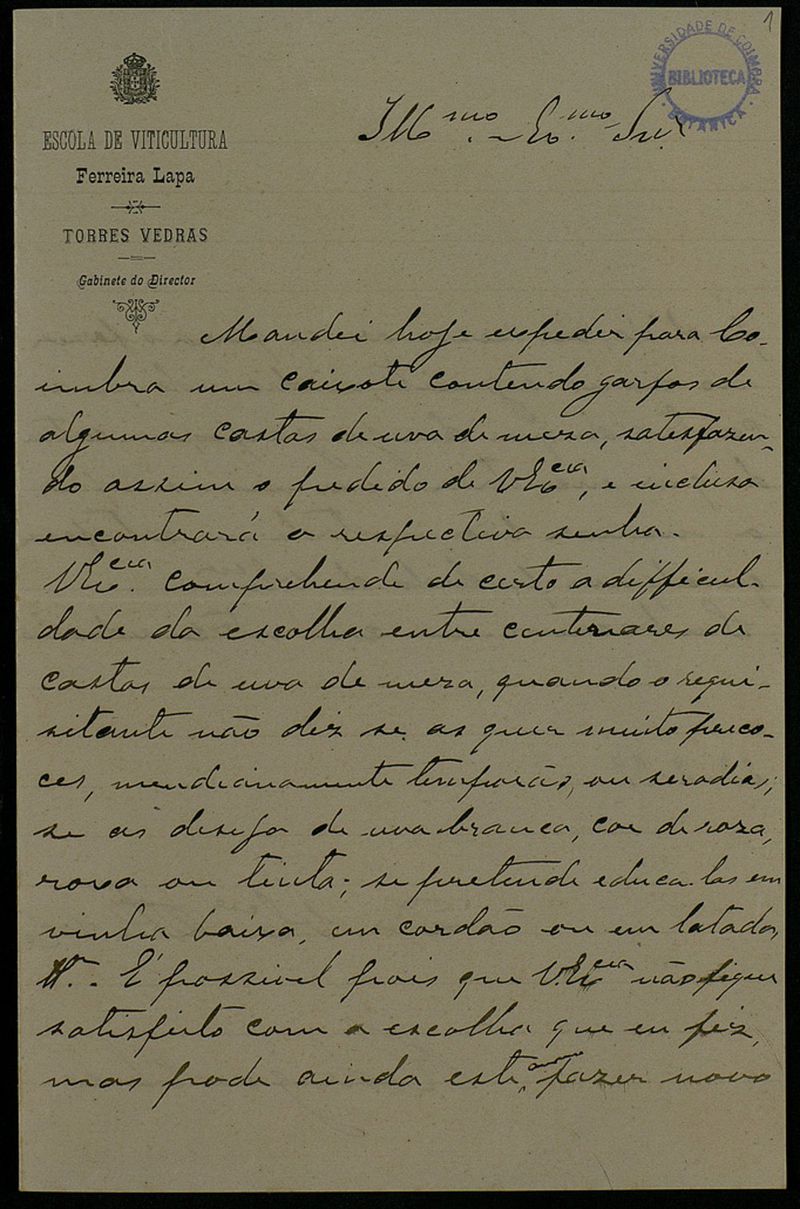 1
UNIVERSIDADE DE COIMBRA
BIBLIOTECA
BOTANICA
ESCOLA DE VITICULTURA
Ferreira Lapa
TORRES VEDRAS
Gabinete do Director
Illmo. Exmo. Snr
Mandei hoje expedir para Co-
imbra um caixote contendo garfos de
algumas castas de uva de meza, satisfazen-
do assim o pedido de VExcia, e inclusa
encontrará a respectiva senha.
VExcia. comprehende de certo a difficul-
dade da escolha entre centenares de
castas de uva de meza, quando o requi-
sitante não diz se as quer muito preco-
ces, mendianamente temporãs, ou serodias;
se as deseja de uva branca, cor de roza,
roxa ou tinta; se pretende educa-las em
vinha baixa, em cordão ou em latadas,
É possivel pois que V.Excia não fique
satisfeito com a escolha que eu fiz,
mas pode ainda este anno fazer novo